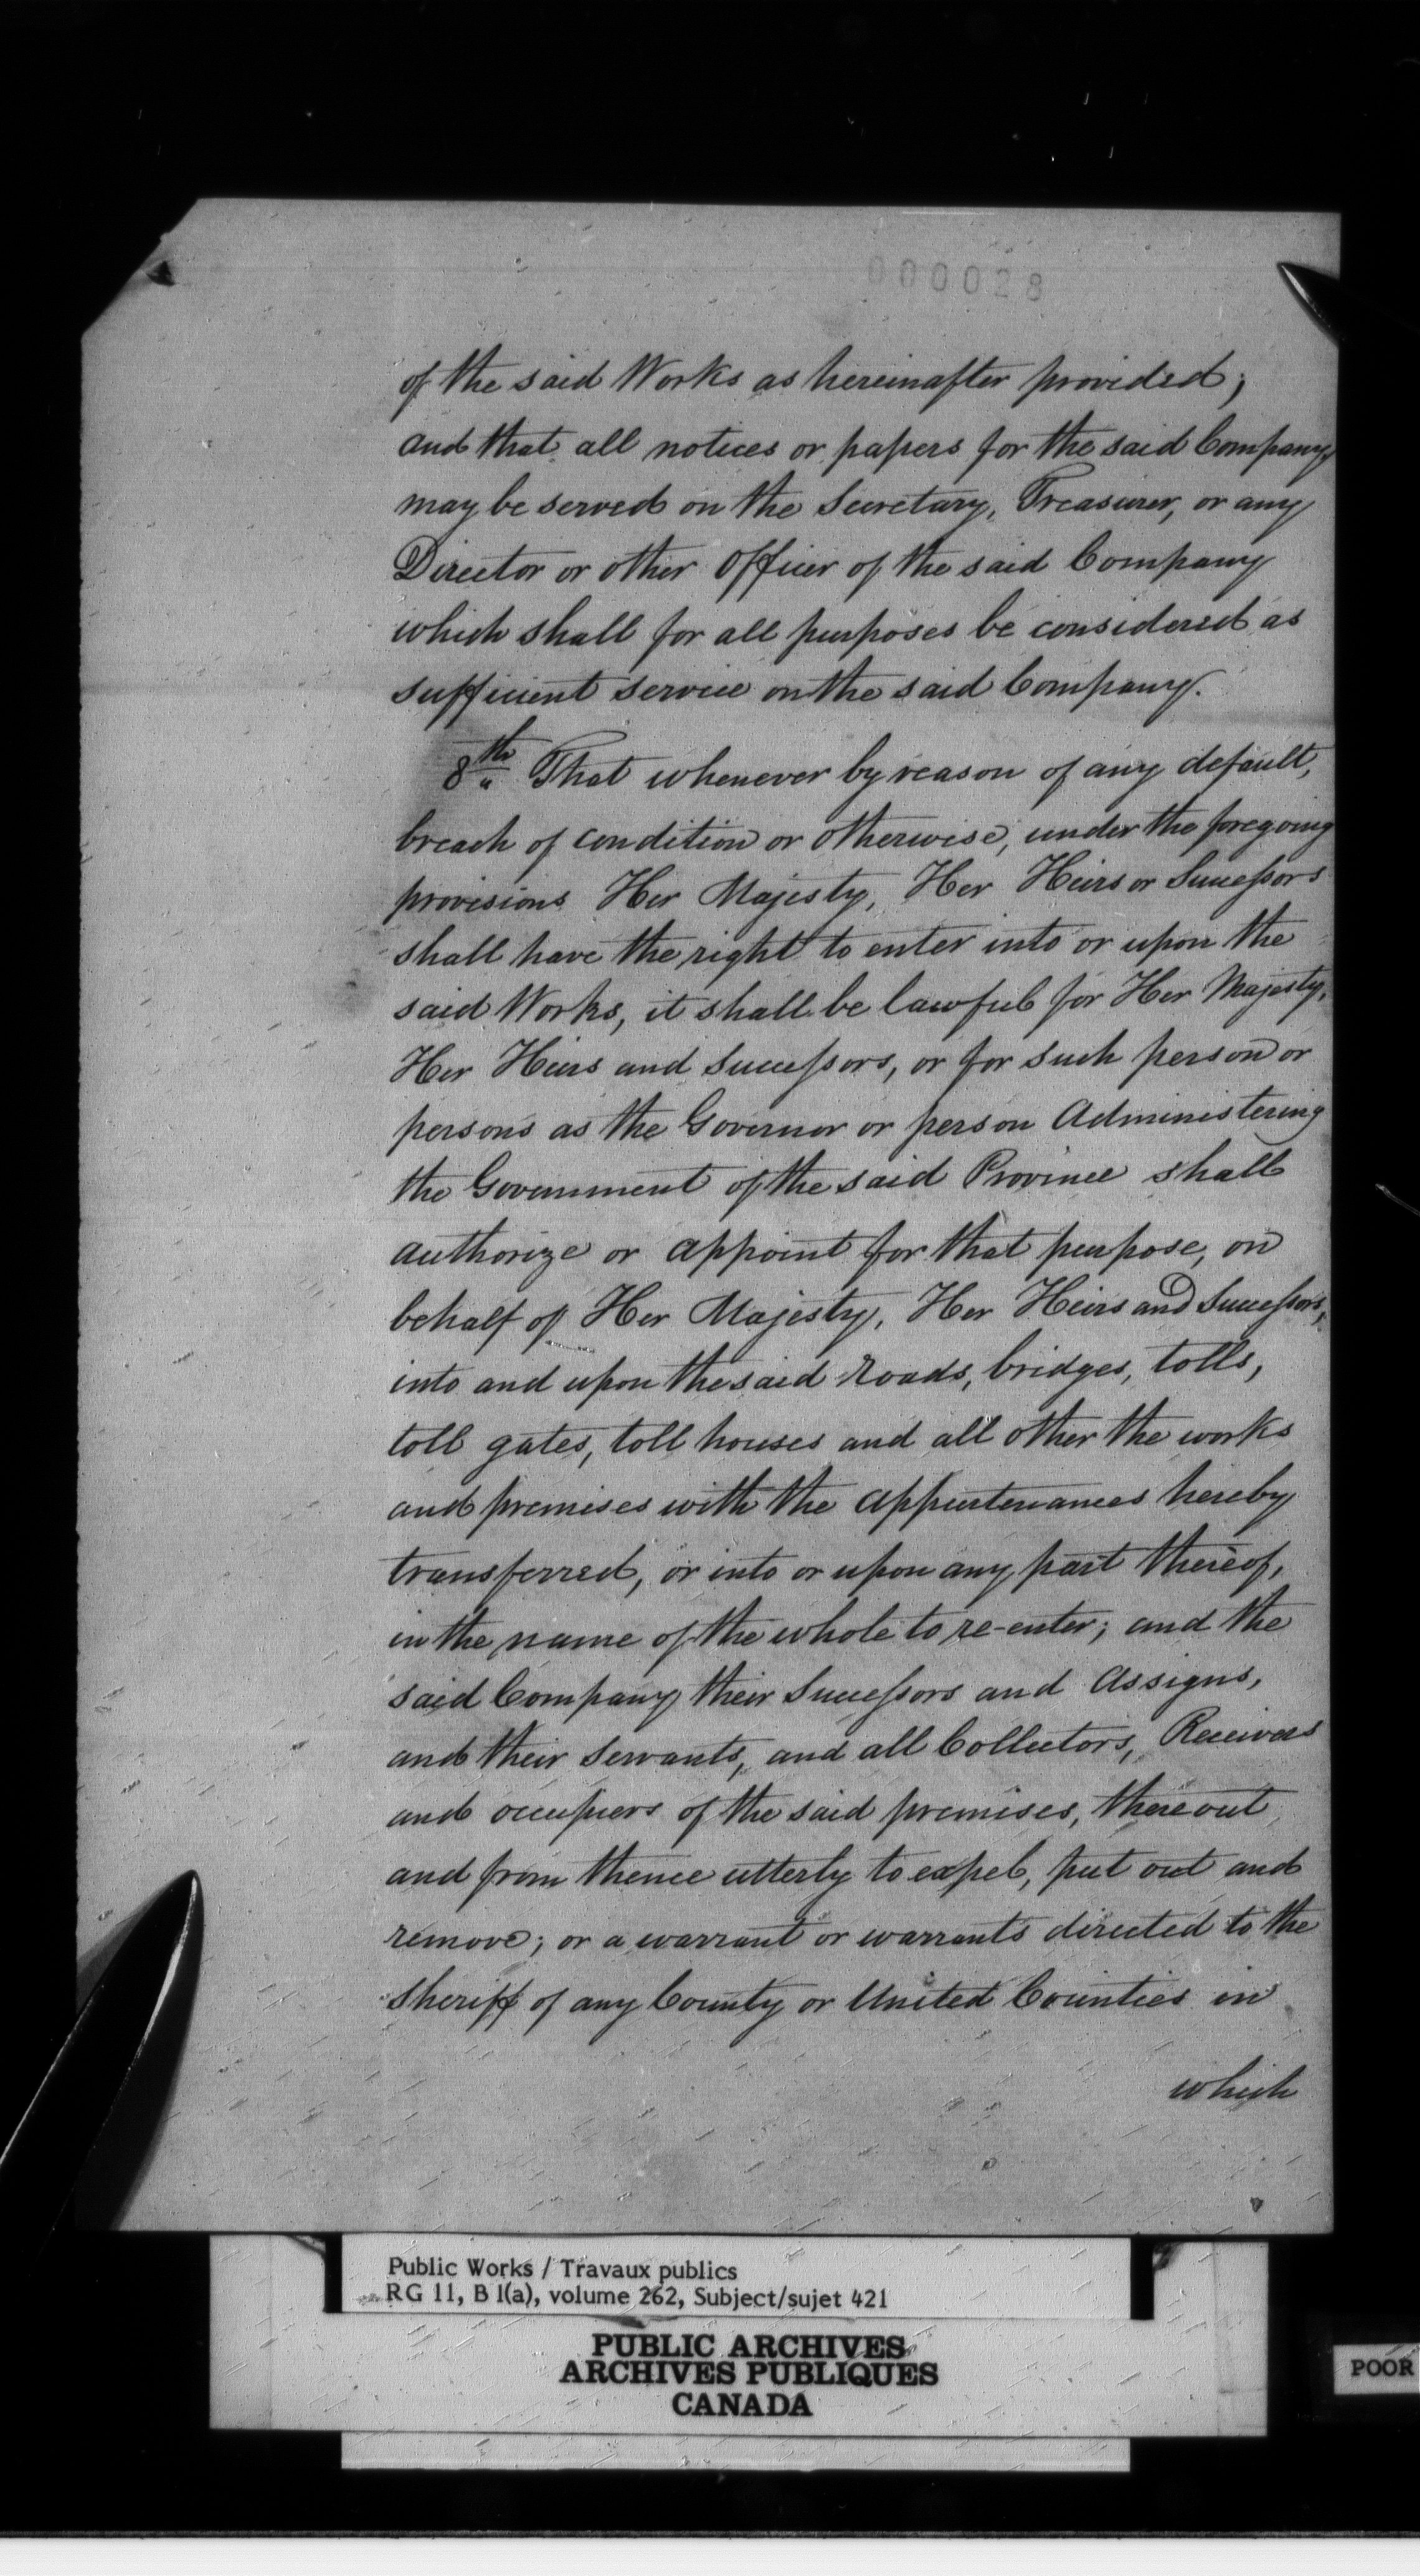 000028
of the said Works as hereinafter provided;
and that all notices or papers for the said Company,
may be served on the Secretary, Treasurer, or any
Director or other Officer of the said Company
which shall for all purposes be considered as
sufficient service on the said Company.
8th That whenever by reason of any default,
breach of condition or otherwise, under the foregoing
provisions Her Majesty, Her Heirs or Successors
shall have the right to enter into or upon the
said Works, it shall be lawful for Her Majesty,
Her Heirs and Successors, or for such person or
persons as the Governor or person Administering
the Government of the said Province shall
authorize or appoint for that purpose, on
behalf of Her Majesty, Her Heirs and Successors,
into and upon the said Roads, bridges, tolls,
toll gates, toll houses and all other the works
and premises with the appurtenances hereby
transferred, or into or upon any part thereof,
in the name of the whole to re-enter; and the
said Company their Successors and Assigns,
and their Servants, and all Collectors, Receivers
and occupiers of the said premises, thereout
and from thence utterly to expel, put out and
remove; or a warrant or warrants directed to the
Sheriff of any County or United Counties in
which
Public Works / Travaux publics
RG 11, B 1(a), volume 262, Subject/sujet 421
PUBLIC ARCHIVES
ARCHIVES PUBLIQUES
CANADA
POOR